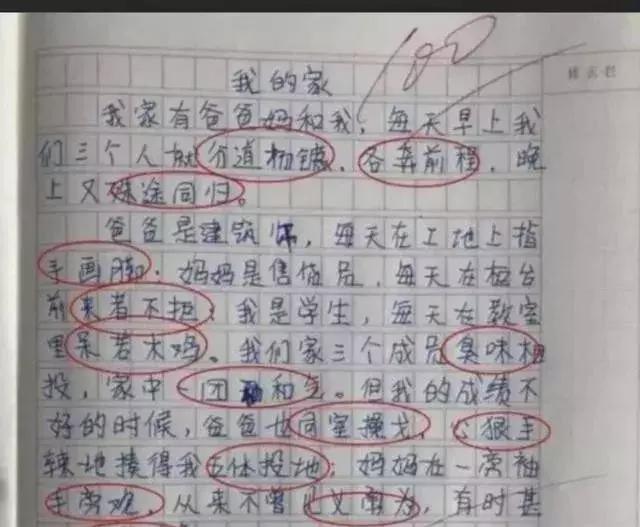 100
我的家
我家有爸爸妈和我，每天早上我
们三个人就分道扬镳，各奔前程，晚
上又殊途同归。
爸爸是建筑师，每天在工地上指
手画脚；妈妈是售货员，每天在柜台
前来者不拒；我是学生，每天在教室
里呆若木鸡。我们家三个成员臭味相
投，家中一团和气。但我的成绩不
好的时候，爸爸也同室操戈，心狠手
辣地揍得我五体投地；妈妈在一旁袖
手旁观，从来不曾见义勇为，有时甚